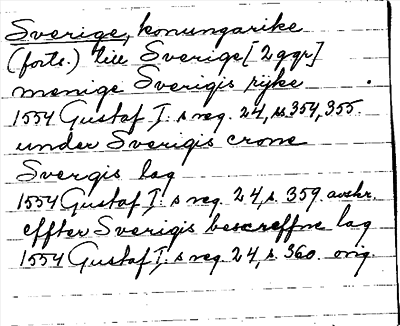 Sverige, konungarike
(forts.) till Sverige [2 ggr]
menige Sverigis rijke
1554 Gustaf I:s reg. 24, ss 354, 355.
under Sverigis crone
Sverigis lag
1554 Gustaf I:s reg. 24, s. 359. avskr.
effter Sverigis bescreffne lag
1554 Gustaf I:s reg. 24, s. 360. orig.